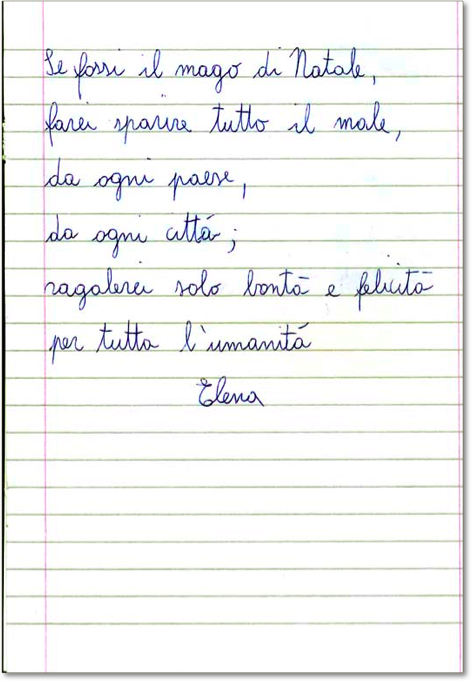 Se fossi il mago di Natale,
farei sparire tutto il male,
da ogni paese,
da ogni cittá;
ragalerei solo bontà e felicità
per tutta l'umanitá
Elena